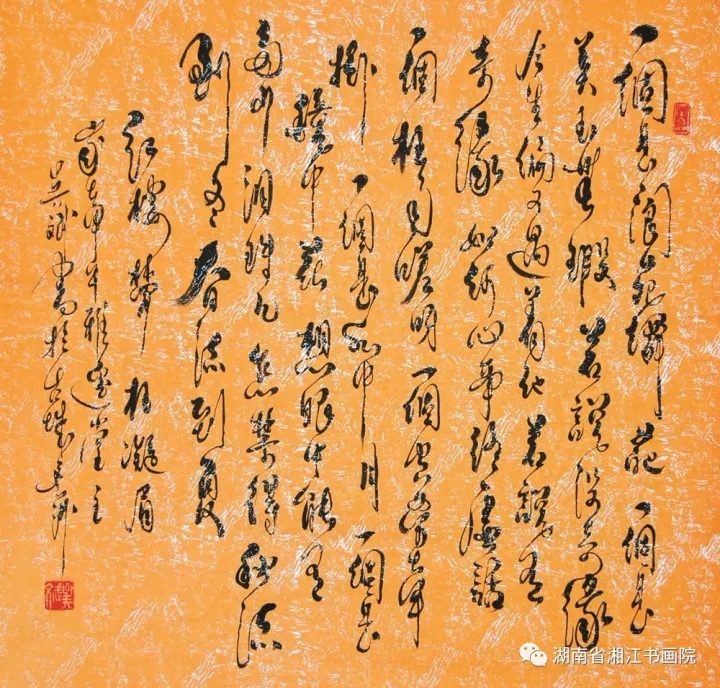 一個是閬苑仙葩 一個是
美玉無瑕 若說沒奇緣
今生偏又遇着他 若說有
奇緣 如何心事終虛話
一個枉自嗟呀 一個空勞牽
掛 一個是水中月 一個是
鏡中花 想眼中能有
多少淚珠兒 怎禁得秋流
到冬 春流到夏
紅樓夢 枉凝眉
歲在甲午雅 堂主
書於古城
湖南省湘江书画院